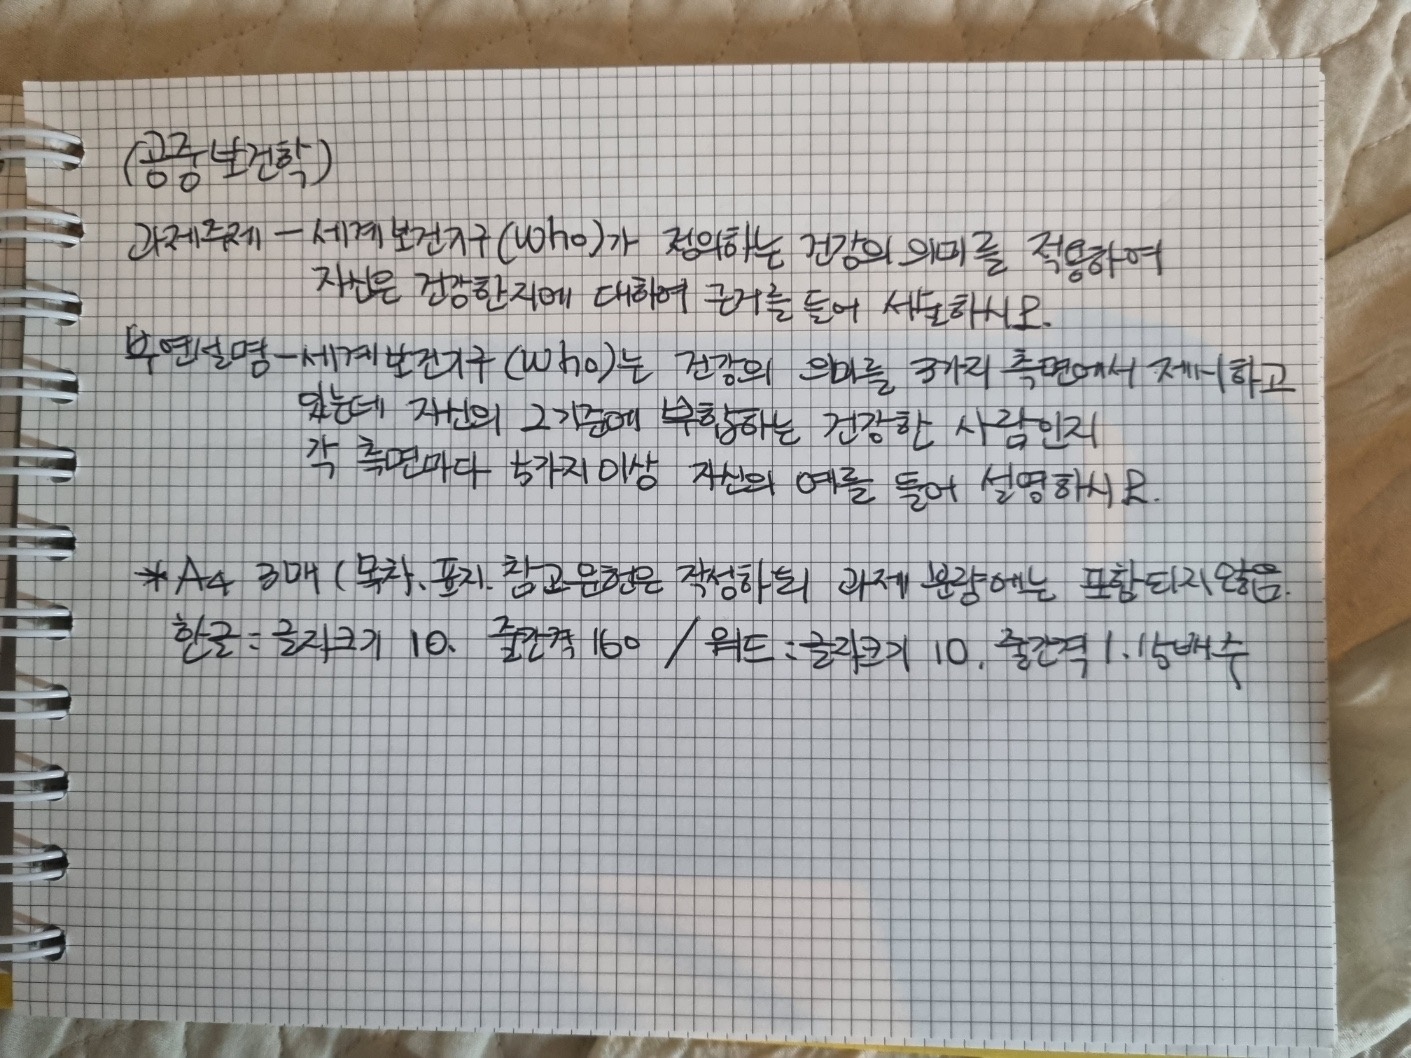 (공중보건학)
과제주제 - 세계보건기구(Who)가 정의하는 건강의 의미를 적용하여
자신은 건강한지에 대하여 근거를 들어 서술하시오.
부연설명 - 세계보건기구(Who)는 건강의 의미를 3가지 측면에서 제시하고
있는데 자신의 그 기준에 부합하는 건강한 사람인지
각 측면마다 5가지 이상 자신의 예를 들어 설명하시오.
*A4 3매 (목차, 표지, 참고문헌은 작성하되 과제 분량에는 포함되지 않음.
한글 : 글자크기 10, 줄간격 160 / 워드 : 글자크기 10, 줄간격 1.15배수